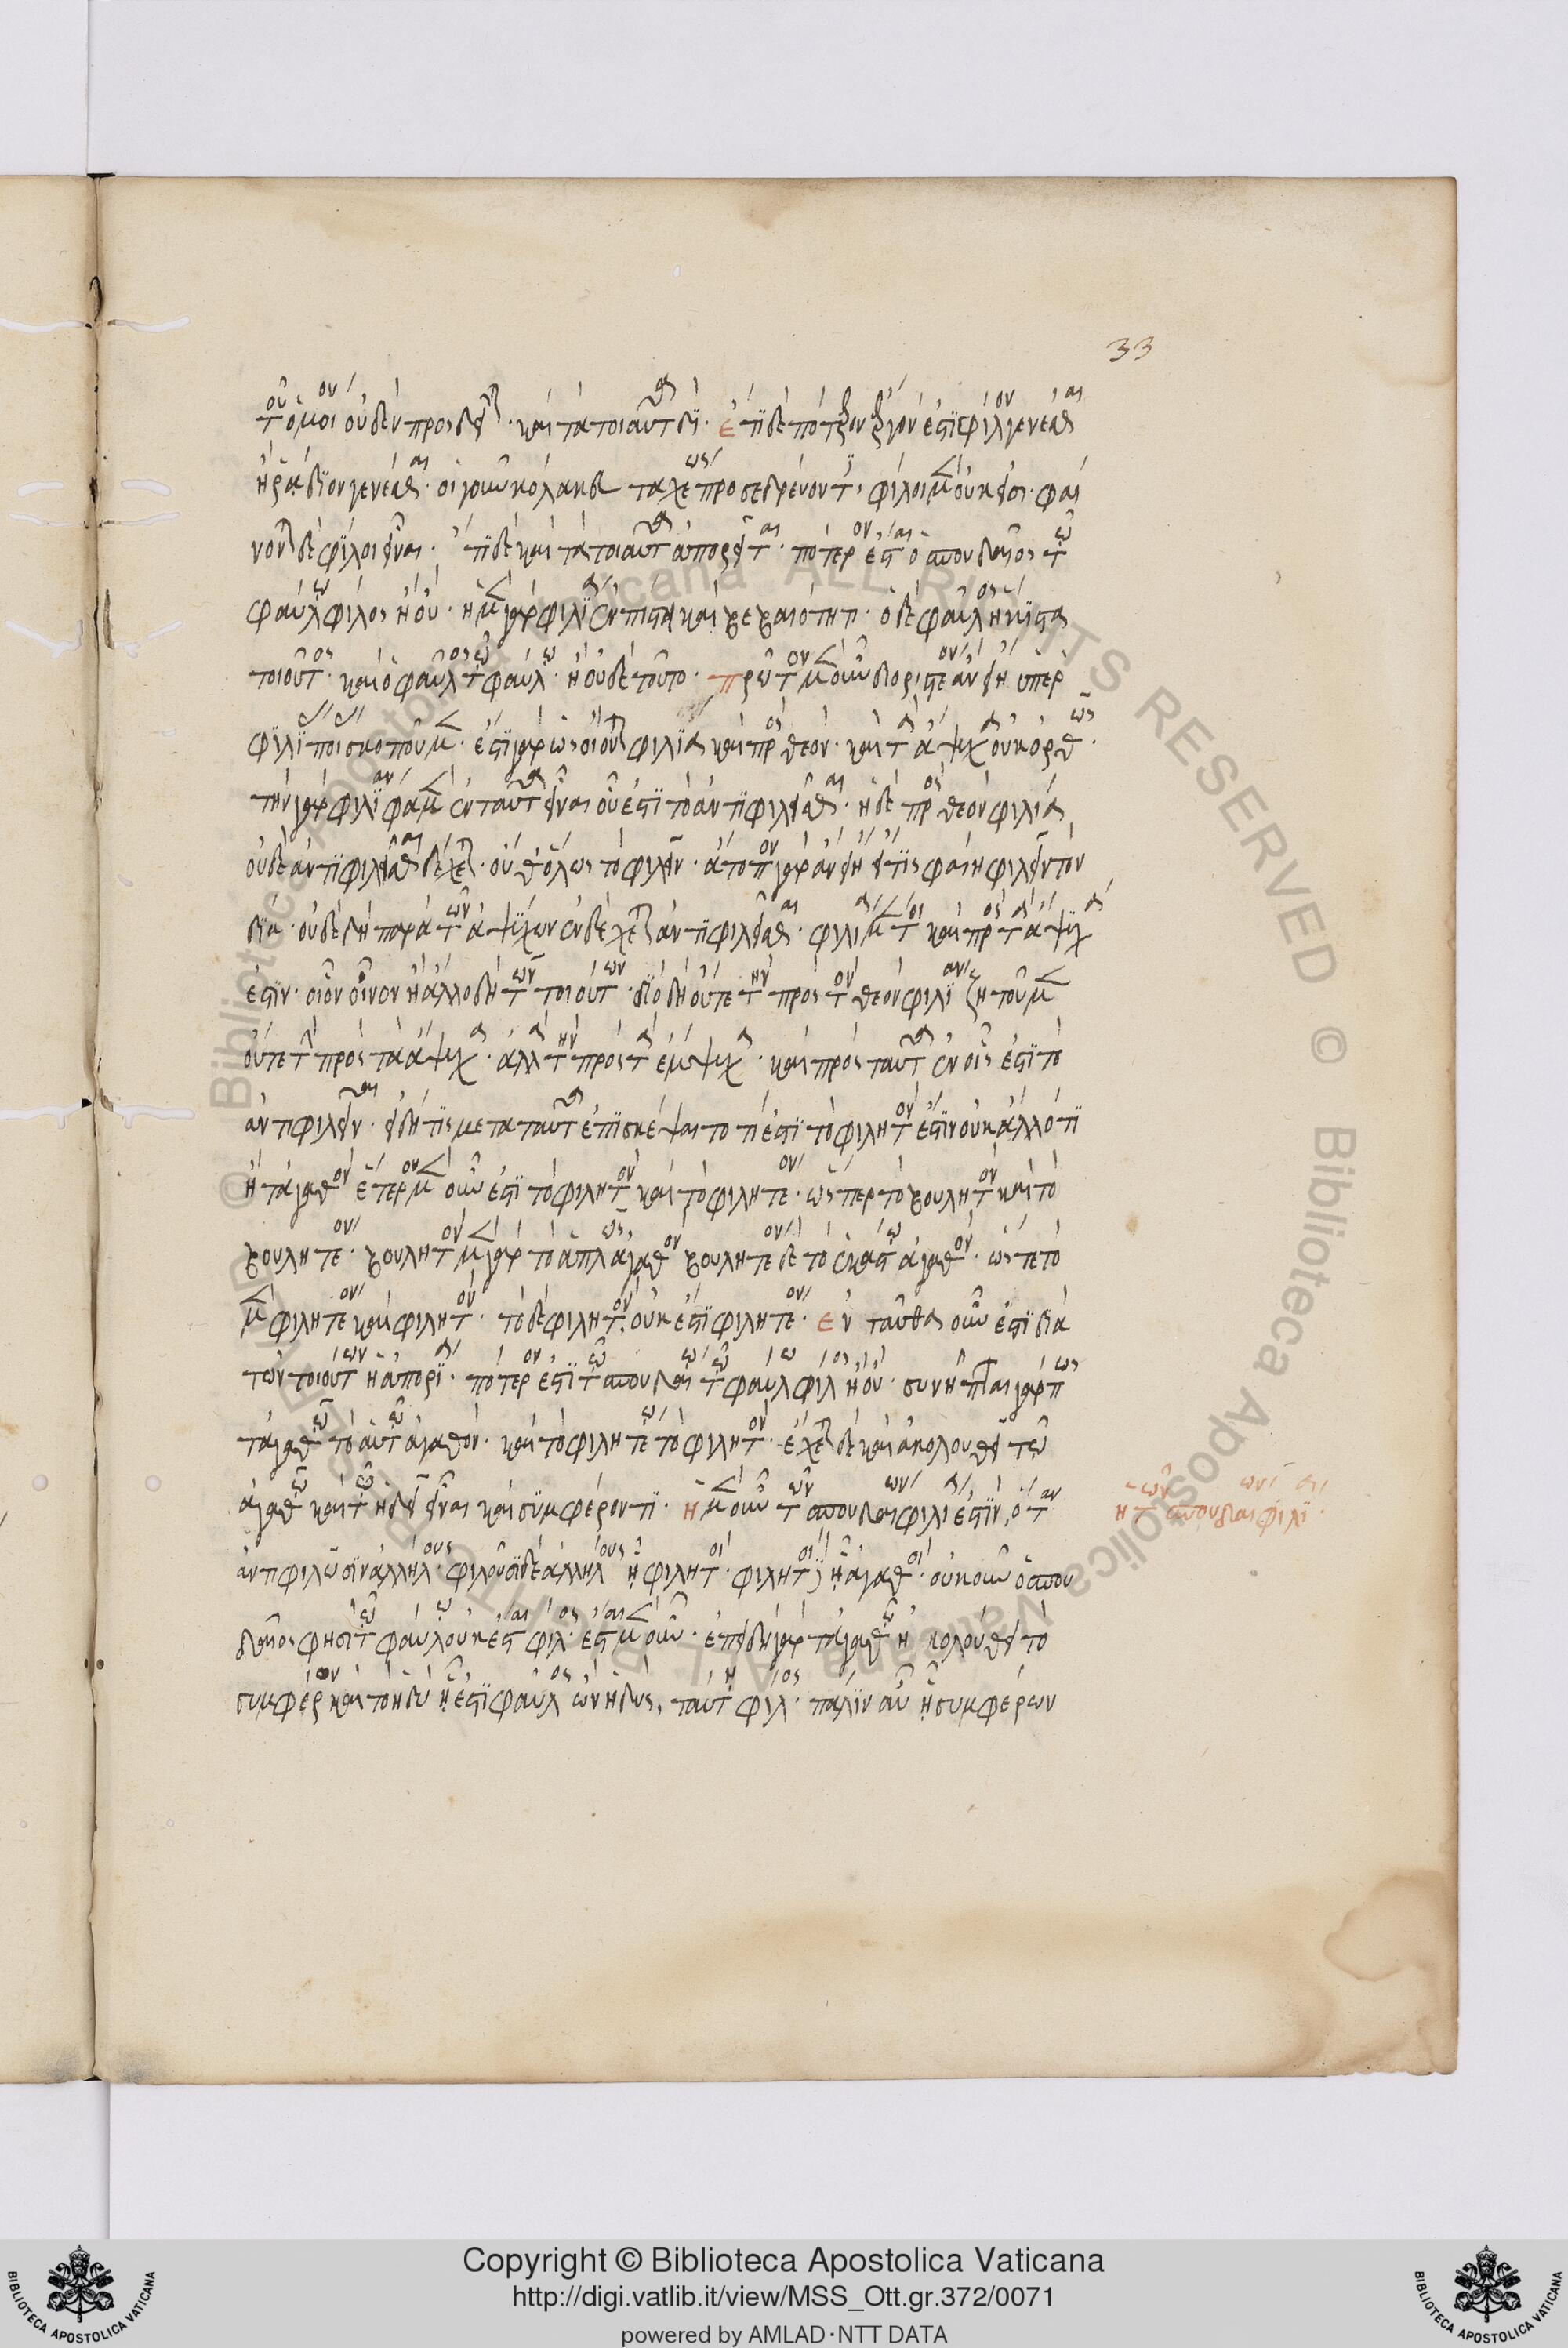 33
τοῦ ὁμοίου οὐδὲν προσδεῖται· καὶ τὰ τοιαῦτα δή· ἔτι δὲ πότερον ἔργον ἐστὶ φίλον γενέσθαι
ἢ ῥάδιον γενέσθαι· οἱ γοῦν κόλακες ταχέως προσεδρεύοντες, φίλοι μὲν οὐκ εἰσι· φαί
νονται δὲ φίλοι εἶναι· ἔτι δὲ καὶ τὰ τοιαῦτα ἀπορεῖται· πότερον ἔσται ὁ σπουδαῖος τῷ
φαύλῳ φίλος ἢ οὔ· ἡ μὲν γὰρ φιλία ἐν πίστει καὶ βεβαιότητι· ὁ δὲ φαῦλος ἥκιστα
τοιοῦτος· καὶ ὁ φαῦλος τῷ φαύλῳ· ἢ οὐδὲ τοῦτο· πρῶτον μὲν οὖν διοριστέον ἂν εἴη ὑπὲρ
φιλίας ποίας σκοποῦμεν· ἔστι γὰρ ὡς οἴονται φιλία καὶ πρὸς θεὸν· καὶ τὰ ἄψυχα οὐκ ὀρθῶς·
τὴν γὰρ φιλίαν φαμὲν ἐνταῦθα εἶναι οὗ ἐστὶ τὸ ἀντιφιλεῖσθαι· ἡ δὲ πρὸς θεὸν φιλία
οὐδὲ ἀντιφιλεῖσθαι δέχεται· οὔθ' ὅλως τὸ φιλεῖν· ἄτοπον γὰρ ἂν εἴη εἴ τις φαίη φιλεῖν τὸν
δία· οὐδὲ δὴ παρὰ τῶν ἀψύχων ἐνδέχεται ἀντιφιλεῖσθαι· φιλία μέντοι καὶ πρὸς τὰ ἄψυχα
ἐστιν· οἷον οἶνον ἢ ἄλλο δὴ τῶν τοιούτων· διὸ δὴ οὔτε τὴν πρὸς τὸν θεὸν φιλίαν ζητοῦμεν
οὔτε τὴν πρὸς τὰ ἄψυχα· ἀλλὰ τὴν πρὸς τὰ ἔμψυχα· καὶ πρὸς ταῦτα ἐν οἷς ἐστὶ τὸ
ἀντιφιλεῖν· εἰ δή τις μετὰ ταῦτα ἐπισκέψαιτο τί ἐστὶ τὸ φιλητὸν ἔστιν οὐκ ἄλλό τι
ἢ τἀγαθὸν ἕτερον μὲν οὖν ἐστὶ τὸ φιλητὸν καὶ τὸ φιλητέον· ὥσπερ τὸ βουλητὸν καὶ τὸ
βουλητέον· βουλητὸν μὲν γὰρ τὸ ἁπλῶς ἀγαθὸν βουλητέον δὲ τὸ ἑκάστῳ ἀγαθὸν· ὥστε τὸ
μὲν φιλητέον καὶ φιλητὸν· τὸ δὲ φιλητὸν, οὐκ ἔστι φιλητέον· ἐνταῦθα οὖν ἐστὶ διὰ
τῶν τοιούτων ἡ ἀπορία· πότερόν ἐστι τῷ σπουδαίῳ τῷ φαύλῳ φίλος ἢ οὔ· συνῆπται γάρ πως
τἀγαθῷ τὸ αὑτῷ ἀγαθὸν· καὶ τὸ φιλητέῳ τὸ φιλητὸν· ἔχεται δὲ καὶ ἀκολουθεῖ τῷ
ἀγαθῷ καὶ τῷ ἡδεῖ εἶναι καὶ συμφέροντι· ἡ μὲν οὖν τῶν σπουδαίων φιλία ἐστὶν, ὅταν
ἀντιφιλῶσιν ἀλλήλους· φιλοῦσι δὲ ἀλλήλους ᾗ φιλητοὶ· φιλητοὶ ᾗ ἀγαθοὶ· οὐκοῦν ὁ σπου
δαῖος φησὶ τῷ φαύλῳ οὐκ ἔσται φίλος· ἔσται μὲν οὖν· ἐπειδὴ γὰρ τἀγαθῷ ἠκολούθει τὸ
συμφέρον καὶ τὸ ἡδὺ ᾗ ἐστὶ φαῦλος ὢν ἡδύς, ταύτῃ φίλος· πάλιν αὖ ᾗ συμφέρων
ἡ τῶν σπουδαίων φιλία·
Copyright © Biblioteca Apostolica Vaticana
http://digi.vatlib.it/view/MSS_Ott.gr.372/0071
powered by AMLAD·NTT DATA